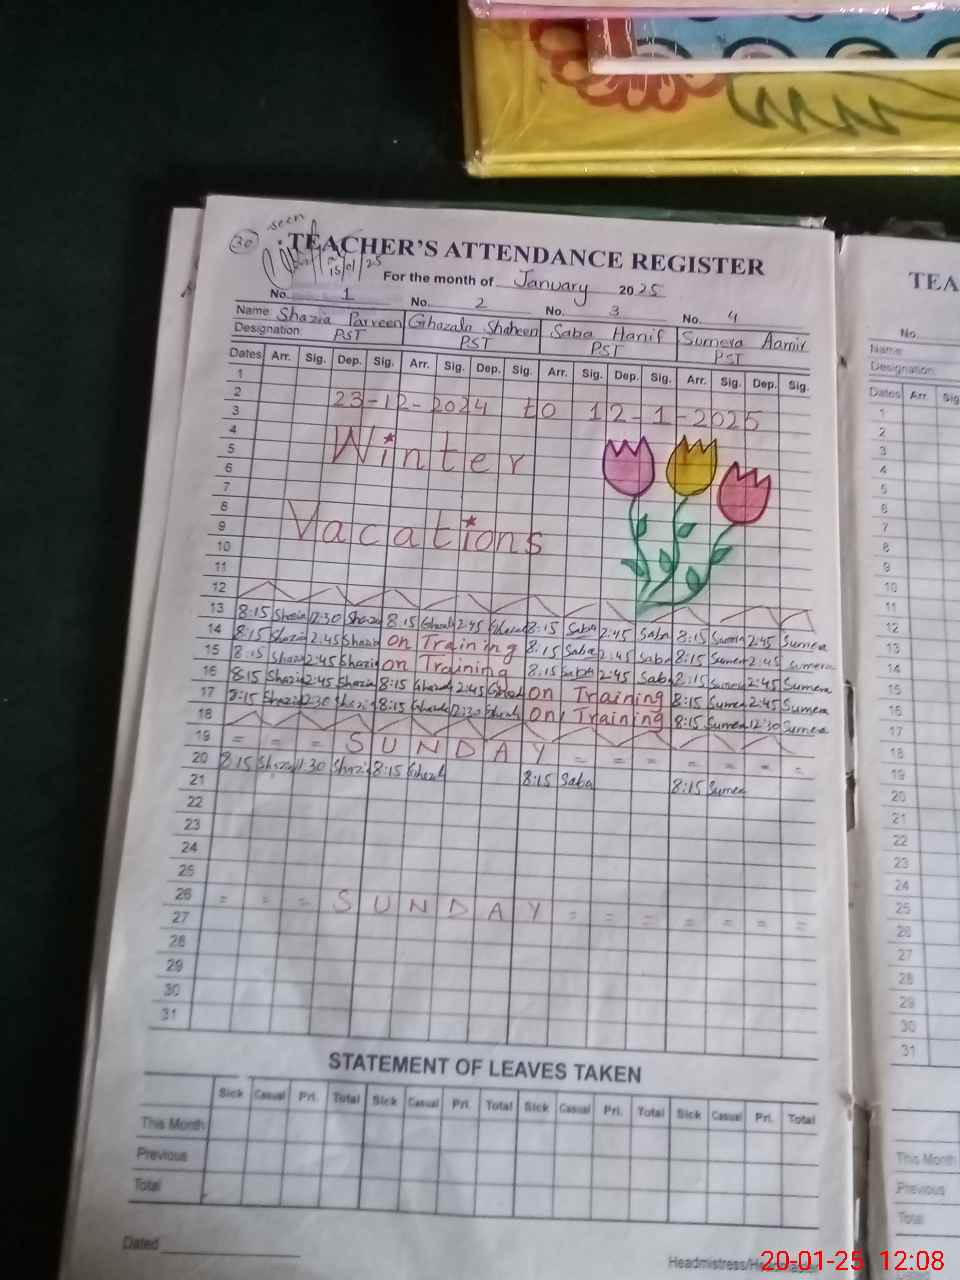 30 seen
TEACHER'S ATTENDANCE REGISTER
15/01/25
For the month of January 2025
No. 1 No. 2 No. 3 No. 4
Name: Shazia Parveen Ghazala Shaheen Saba Hanif Sumera Aamir
Designation: PST PST PST PST
Dates Arr. Sig. Dep. Sig. Arr. Sig. Dep. Sig. Arr. Sig. Dep. Sig. Arr. Sig. Dep. Sig.
1
2
3 23-12-2024 to 12-1-2025
4
5 Winter
6
7
8
9 Vacations
10
11
12
13 8:15 Shazia 12:30 Shazia 8:15 Ghazala 2:45 Ghazala 8:15 Saba 2:45 Saba 8:15 Sumera 2:45 Sumera
14 8:15 Shazia 2:45 Shazia on Training 8:15 Saba 2:45 Saba 8:15 Sumera 2:45 Sumera
15 8:15 Shazia 2:45 Shazia on Training 8:15 Saba 2:45 Saba 8:15 Sumera 2:45 Sumera
16 8:15 Shazia 2:45 Shazia 8:15 Ghazala 2:45 Ghazala on Training 8:15 Sumera 2:45 Sumera
17 8:15 Shazia 12:30 Shazia 8:15 Ghazala 12:30 Ghazala on Training 8:15 Sumera 12:30 Sumera
18
19 = = = SUNDAY = = = = = = =
20 8:15 Shazia 1:30 Shazia 8:15 Ghazala 8:15 Saba 8:15 Sumera
21
22
23
24
25
26 = = = SUNDAY = = = = = = =
27
28
29
30
31
STATEMENT OF LEAVES TAKEN
Sick Casual Pri. Total Sick Casual Pri. Total Sick Casual Pri. Total Sick Casual Pri. Total
This Month
Previous
Total
Dated
Headmistress/Headmaster
TEA
No.
Name:
Designation:
Dates Arr. Sig
1
2
3
4
5
6
7
8
9
10
11
12
13
14
15
16
17
18
19
20
21
22
23
24
25
26
27
28
29
30
31
This Month
Previous
Total
20-01-25 12:08